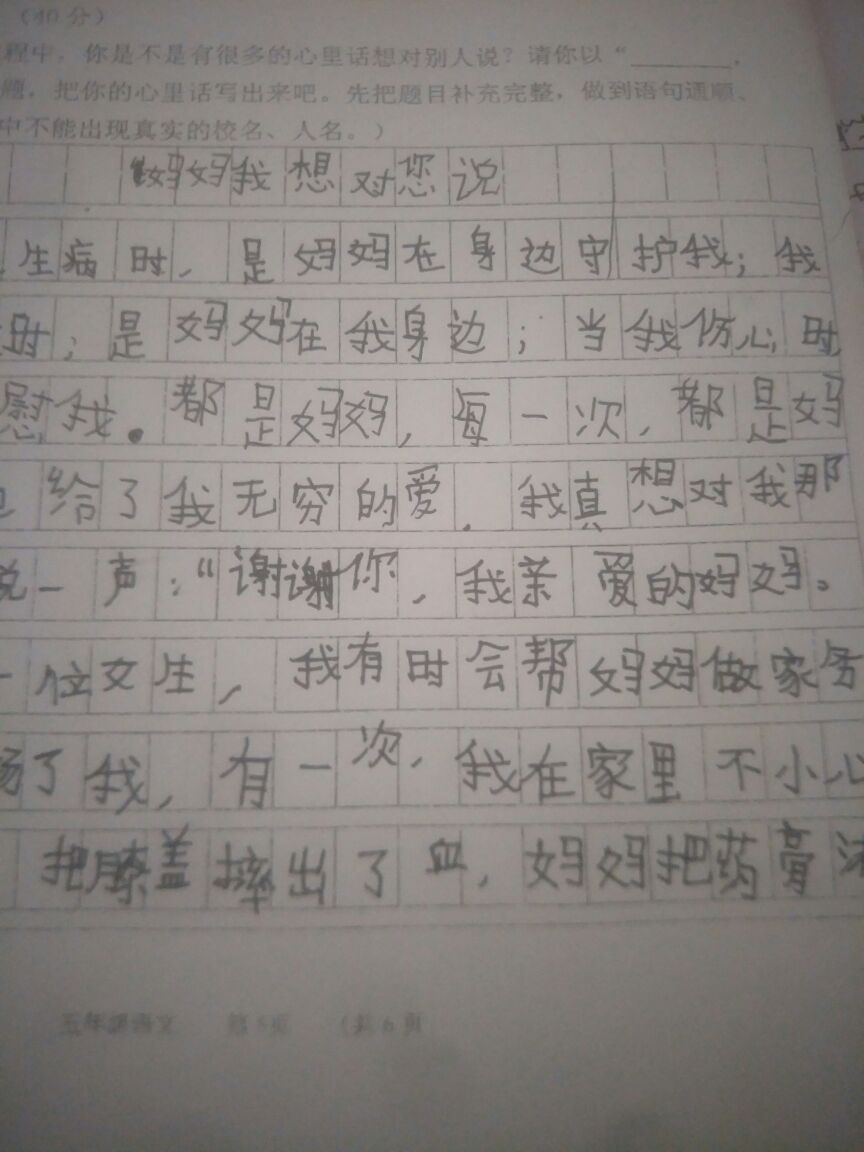 （40分）
程中，你是不是有很多的心里话想对别人说？请你以“________，
题，把你的心里话写出来吧。先把题目补充完整，做到语句通顺、
中不能出现真实的校名、人名。）
妈妈我想对您说
生病时，是妈妈在身边守护我；我
时；是妈妈在我身边；当我伤心时
慰我。都是妈妈，每一次，都是妈
给了我无穷的爱．我真想对我那
说一声：“谢谢你，我亲爱的妈妈。
一位女生，我有时会帮妈妈做家务
扬了我，有一次，我在家里不小心
把膝盖摔出了血，妈妈把药膏沫
五年级语文 第5页 （共6页